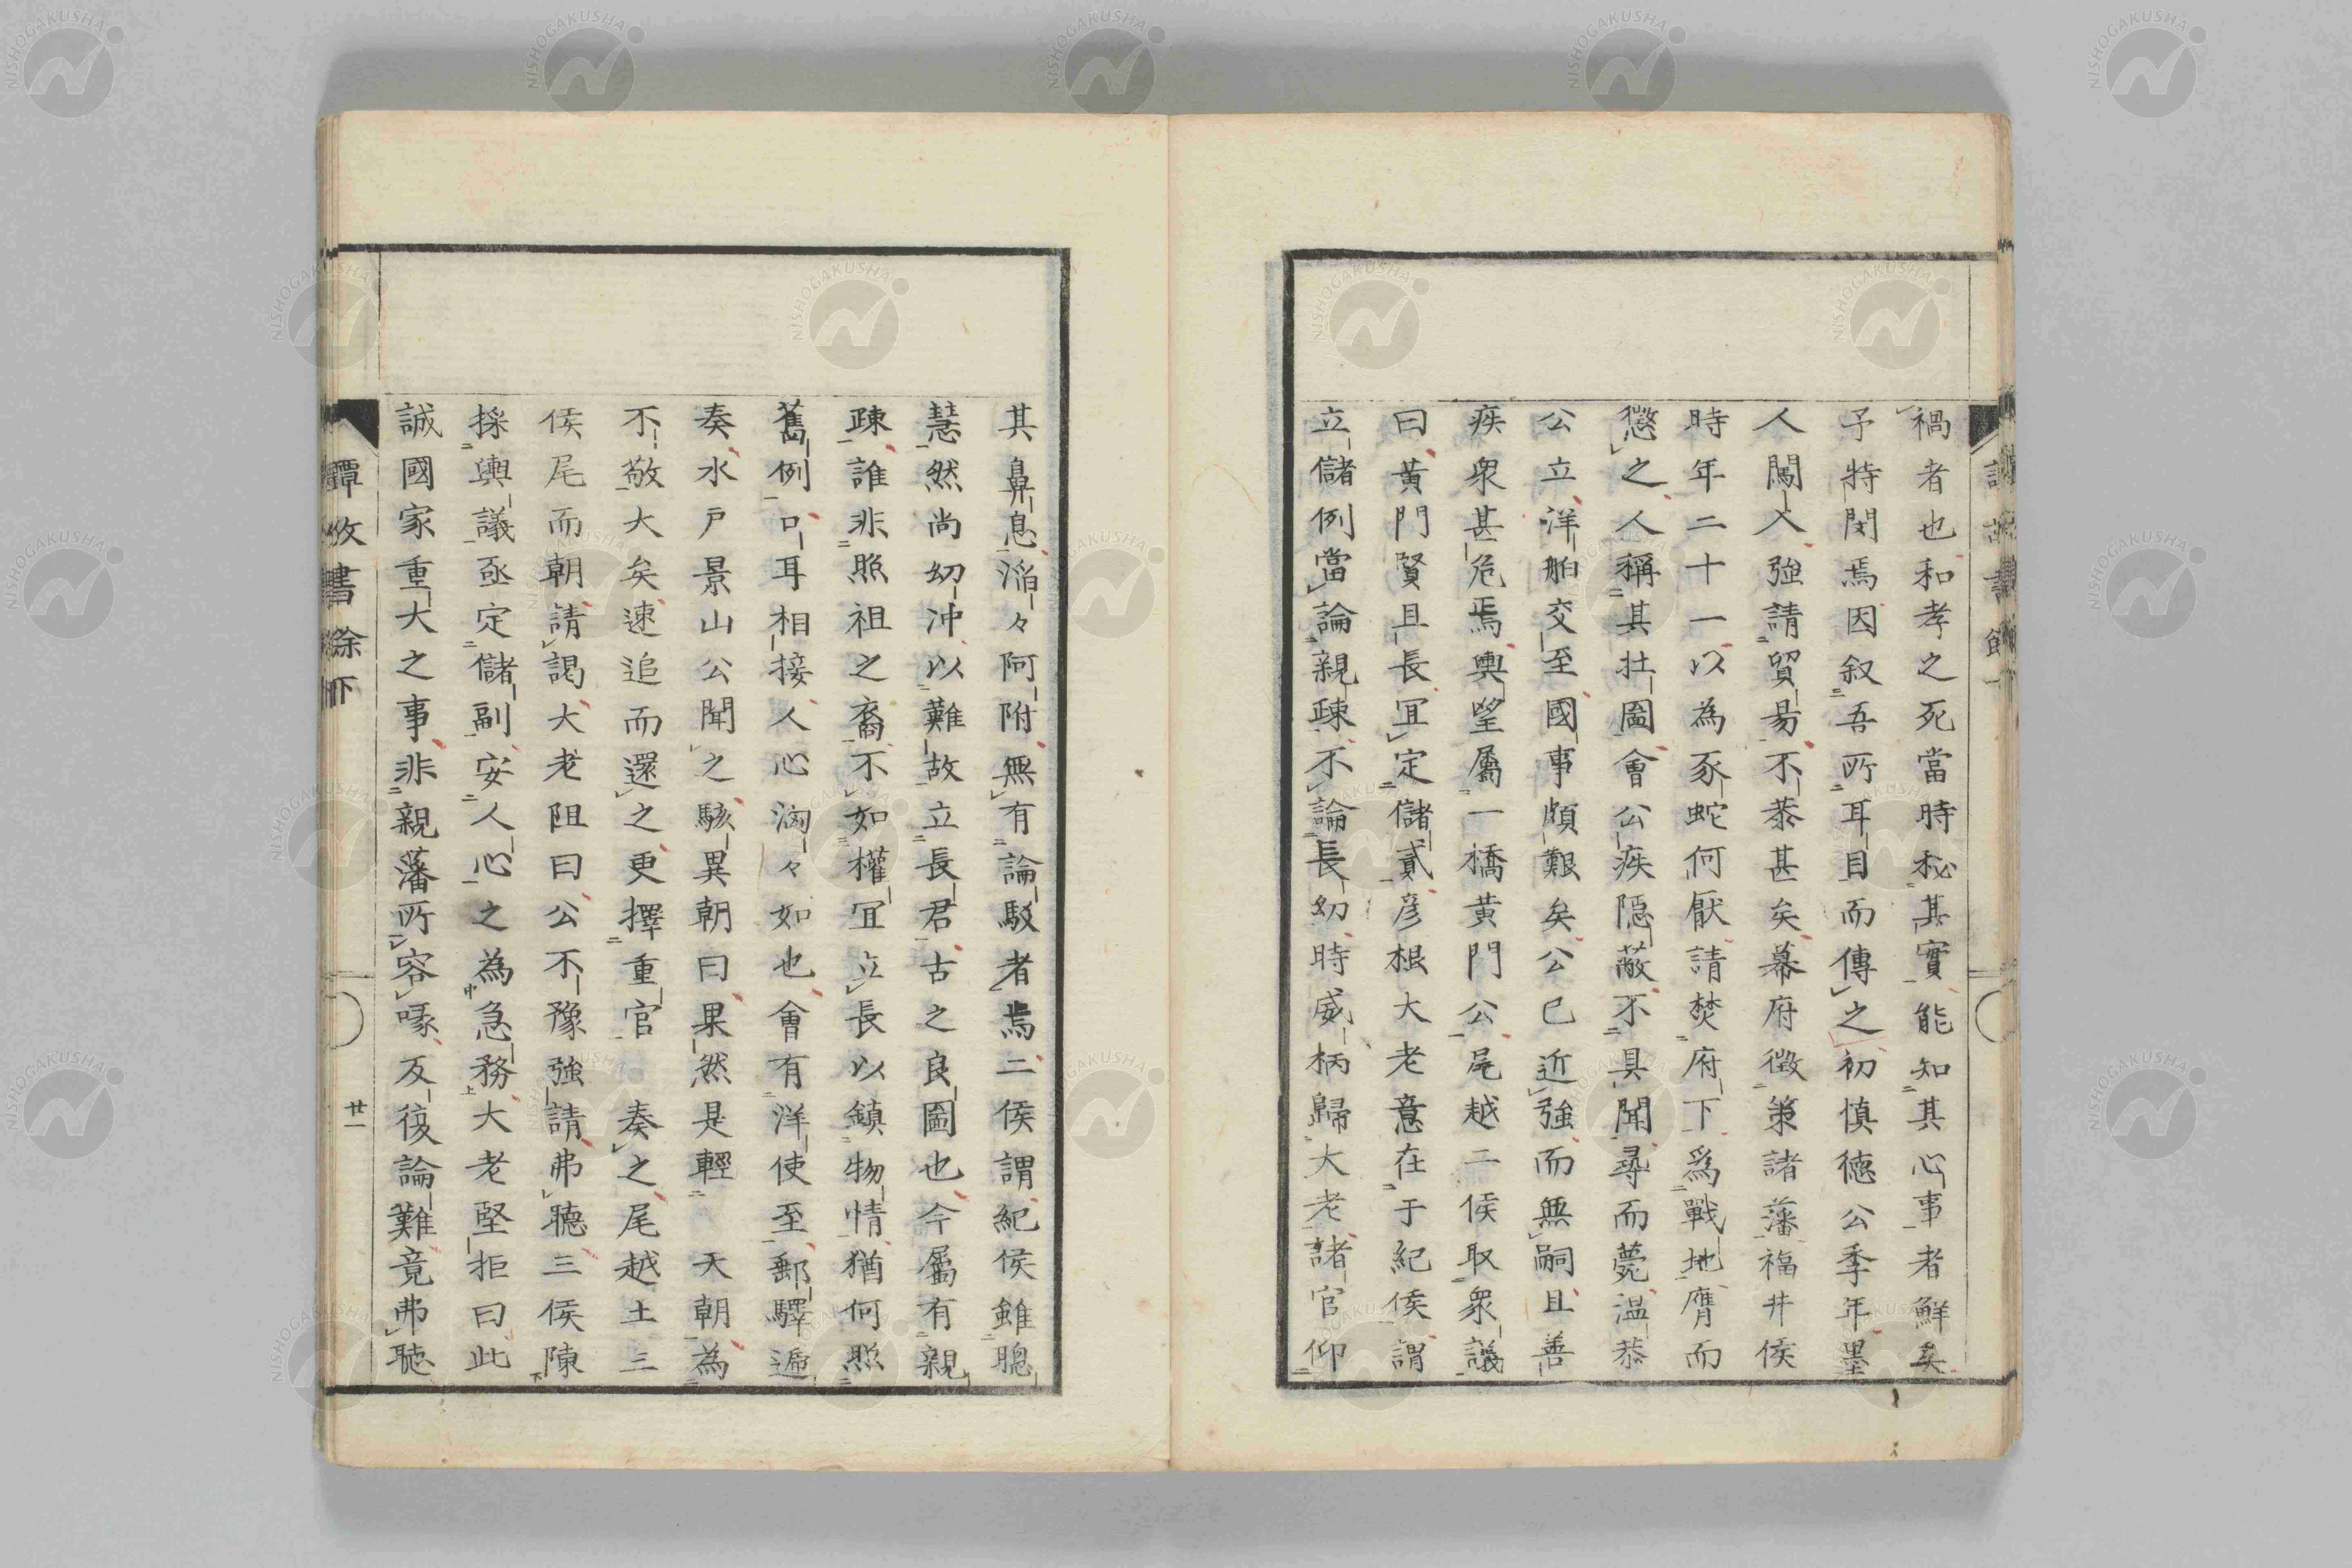 禍者也和孝之死當時秘其實能知其心事者鮮矣
予特閔焉因叙吾所耳目而傳之初慎德公季年墨
人闖入強請貿易不恭甚矣幕府徵策諸藩福井侯
時年二十一以為豕蛇何厭請焚府下爲戰地膺而
懲之人稱其壯圖會公疾隠蔽不具聞尋而薨温恭
公立洋舶交至國事頗艱矣公已近強而無嗣且善
疾衆甚危焉輿望屬一橋黄門公尾越二侯取衆議
曰黄門賢且長冝定儲貳彦根大老意在于紀侯謂
立儲例當論親疎不論長幼時威柄歸大老諸官仰
其鼻息滔々阿附無有論駁者焉二侯謂紀侯雖聰
慧然尚幼冲以難故立長君古之良圖也今屬有親
疎誰非照祖之裔不如權冝立長以鎮物情猶何照
舊例口耳相接人心洶々如也會有洋使至郵驛遞
奏水戸景山公聞之駭異朝曰果然是輕　天朝為
不敬大矣速追而還之更擇重官　奏之尾越土三
侯尾而朝請謁大老阻曰公不豫強請弗聴三侯陳
採輿議亟定儲副安人心之為急務大老堅拒曰此
誠國家重大之事非親藩所容喙反復論難竟弗聴
譚故書餘下
廿一
NISHOGAKUSHA